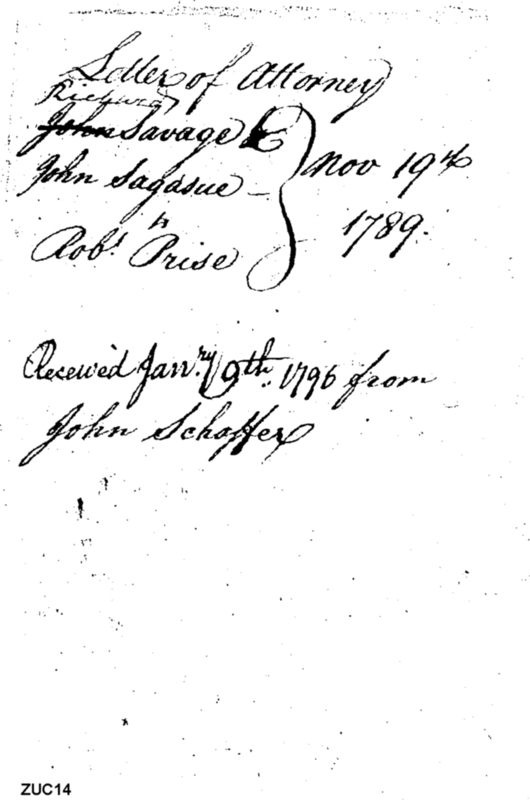 Letter of Attorney
Richard
John Savage &
John Sagasue - } Nov 19th
Robt. " Prise 1789.
Receiv'd Janry. 9th. 1796 from
John Schaffer
ZUC14